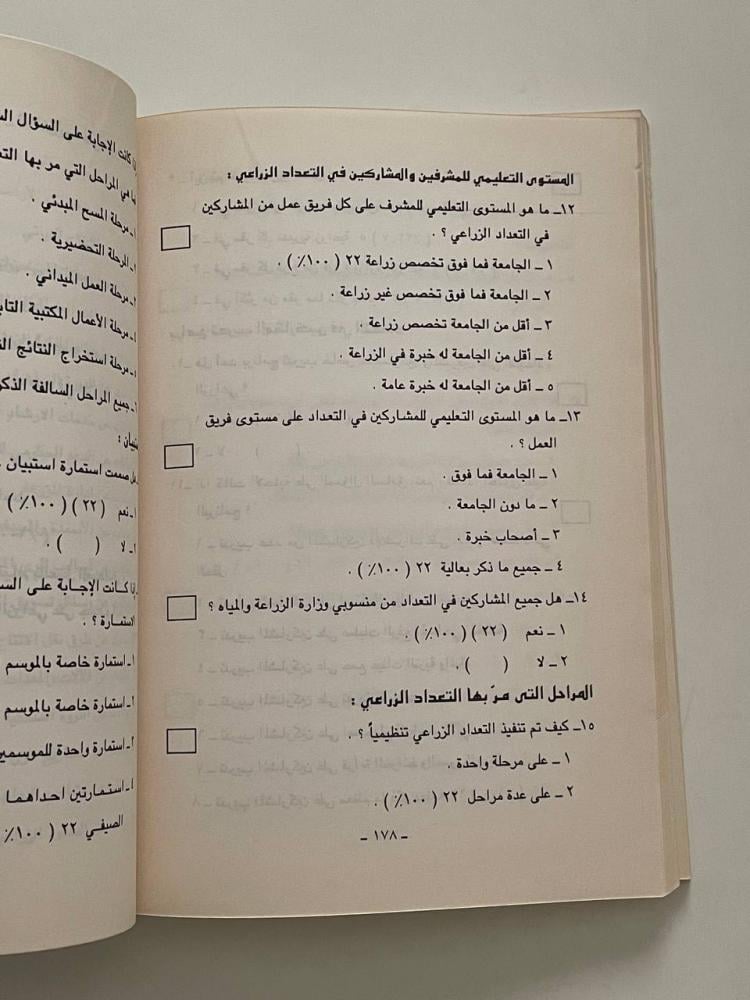 المستوى التعليمي للمشرفين والمشاركين في التعداد الزراعي :
١٢ـ ما هو المستوى التعليمي للمشرف على كل فريق عمل من المشاركين
في التعداد الزراعي ؟ .
١ ـ الجامعة فما فوق تخصص زراعة ٢٢ ( ١٠٠٪ ) .
٢ ـ الجامعة فما فوق تخصص غير زراعة .
٣ ـ أقل من الجامعة تخصص زراعة .
٤ ـ أقل من الجامعة له خبرة في الزراعة .
٥ ـ أقل من الجامعة له خبرة عامة .
١٣ـ ما هو المستوى التعليمي للمشاركين في التعداد على مستوى فريق
العمل ؟ .
١ ـ الجامعة فما فوق .
٢ ـ ما دون الجامعة .
٣ ـ أصحاب خبرة .
٤ ـ جميع ما ذكر بعالية ٢٢ ( ١٠٠٪ ) .
١٤ـ هل جميع المشاركين في التعداد من منسوبي وزارة الزراعة والمياه ؟
١ ـ نعم ( ٢٢ ) ( ١٠٠٪ ) .
٢ ـ لا ( ) .
المراحل التي مرّ بها التعداد الزراعي :
١٥ـ كيف تم تنفيذ التعداد الزراعي تنظيمياً ؟ .
١ ـ على مرحلة واحدة .
٢ ـ على عدة مراحل ٢٢ ( ١٠٠٪ ) .
ـ ١٧٨ ـ
كانت الإجابة على السؤال
هي المراحل التي مر بها
مرحلة المسح المبدئي .
المرحلة التحضيرية .
مرحلة العمل الميداني .
مرحلة الأعمال المكتبية
مرحلة استخراج النتائج
جميع المراحل السالفة
صممت استمارة استبيان
١ـ نعم ( ٢٢ ) ( ١٠٠٪ )
٢ـ لا ( ) .
كانت الإجابة على
؟ .
١ـ استمارة خاصة بالموسم
استمارة خاصة بالموسم
استمارة واحدة للموسمين
استمارتين احداهما
الصيفي ٢٢ ( ١٠٠٪